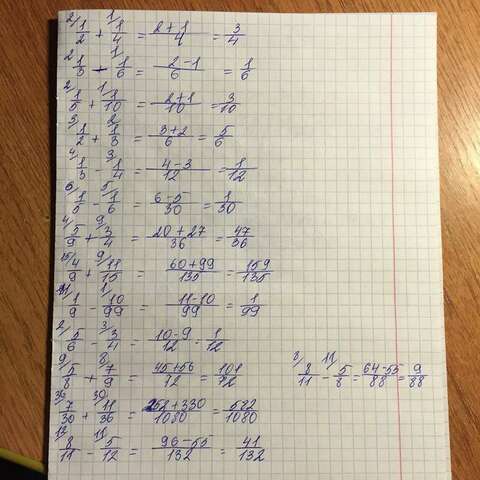 2/ 1/2 + 1/ 1/4 = 2+1/4 = 3/4
2/ 1/3 - 1/ 1/6 = 2-1/6 = 1/6
2/ 1/5 + 1/ 1/10 = 2+1/10 = 3/10
3/ 1/2 + 2/ 1/3 = 3+2/6 = 5/6
4/ 1/3 - 3/ 1/4 = 4-3/12 = 1/12
6/ 1/5 - 5/ 1/6 = 6-5/30 = 1/30
4/ 5/9 + 9/ 3/4 = 20+27/36 = 47/36
15/ 4/9 + 9/ 11/15 = 60+99/135 = 159/135
11/ 1/9 - 1/ 10/99 = 11-10/99 = 1/99
2/ 5/6 - 3/ 3/4 = 10-9/12 = 1/12
9/ 5/8 + 8/ 7/9 = 45+56/72 = 101/72
8/ 8/11 - 11/ 5/8 = 64-55/88 = 9/88
36/ 7/30 + 30/ 11/36 = 252+330/1080 = 582/1080
12/ 8/11 - 11/ 5/12 = 96-55/132 = 41/132